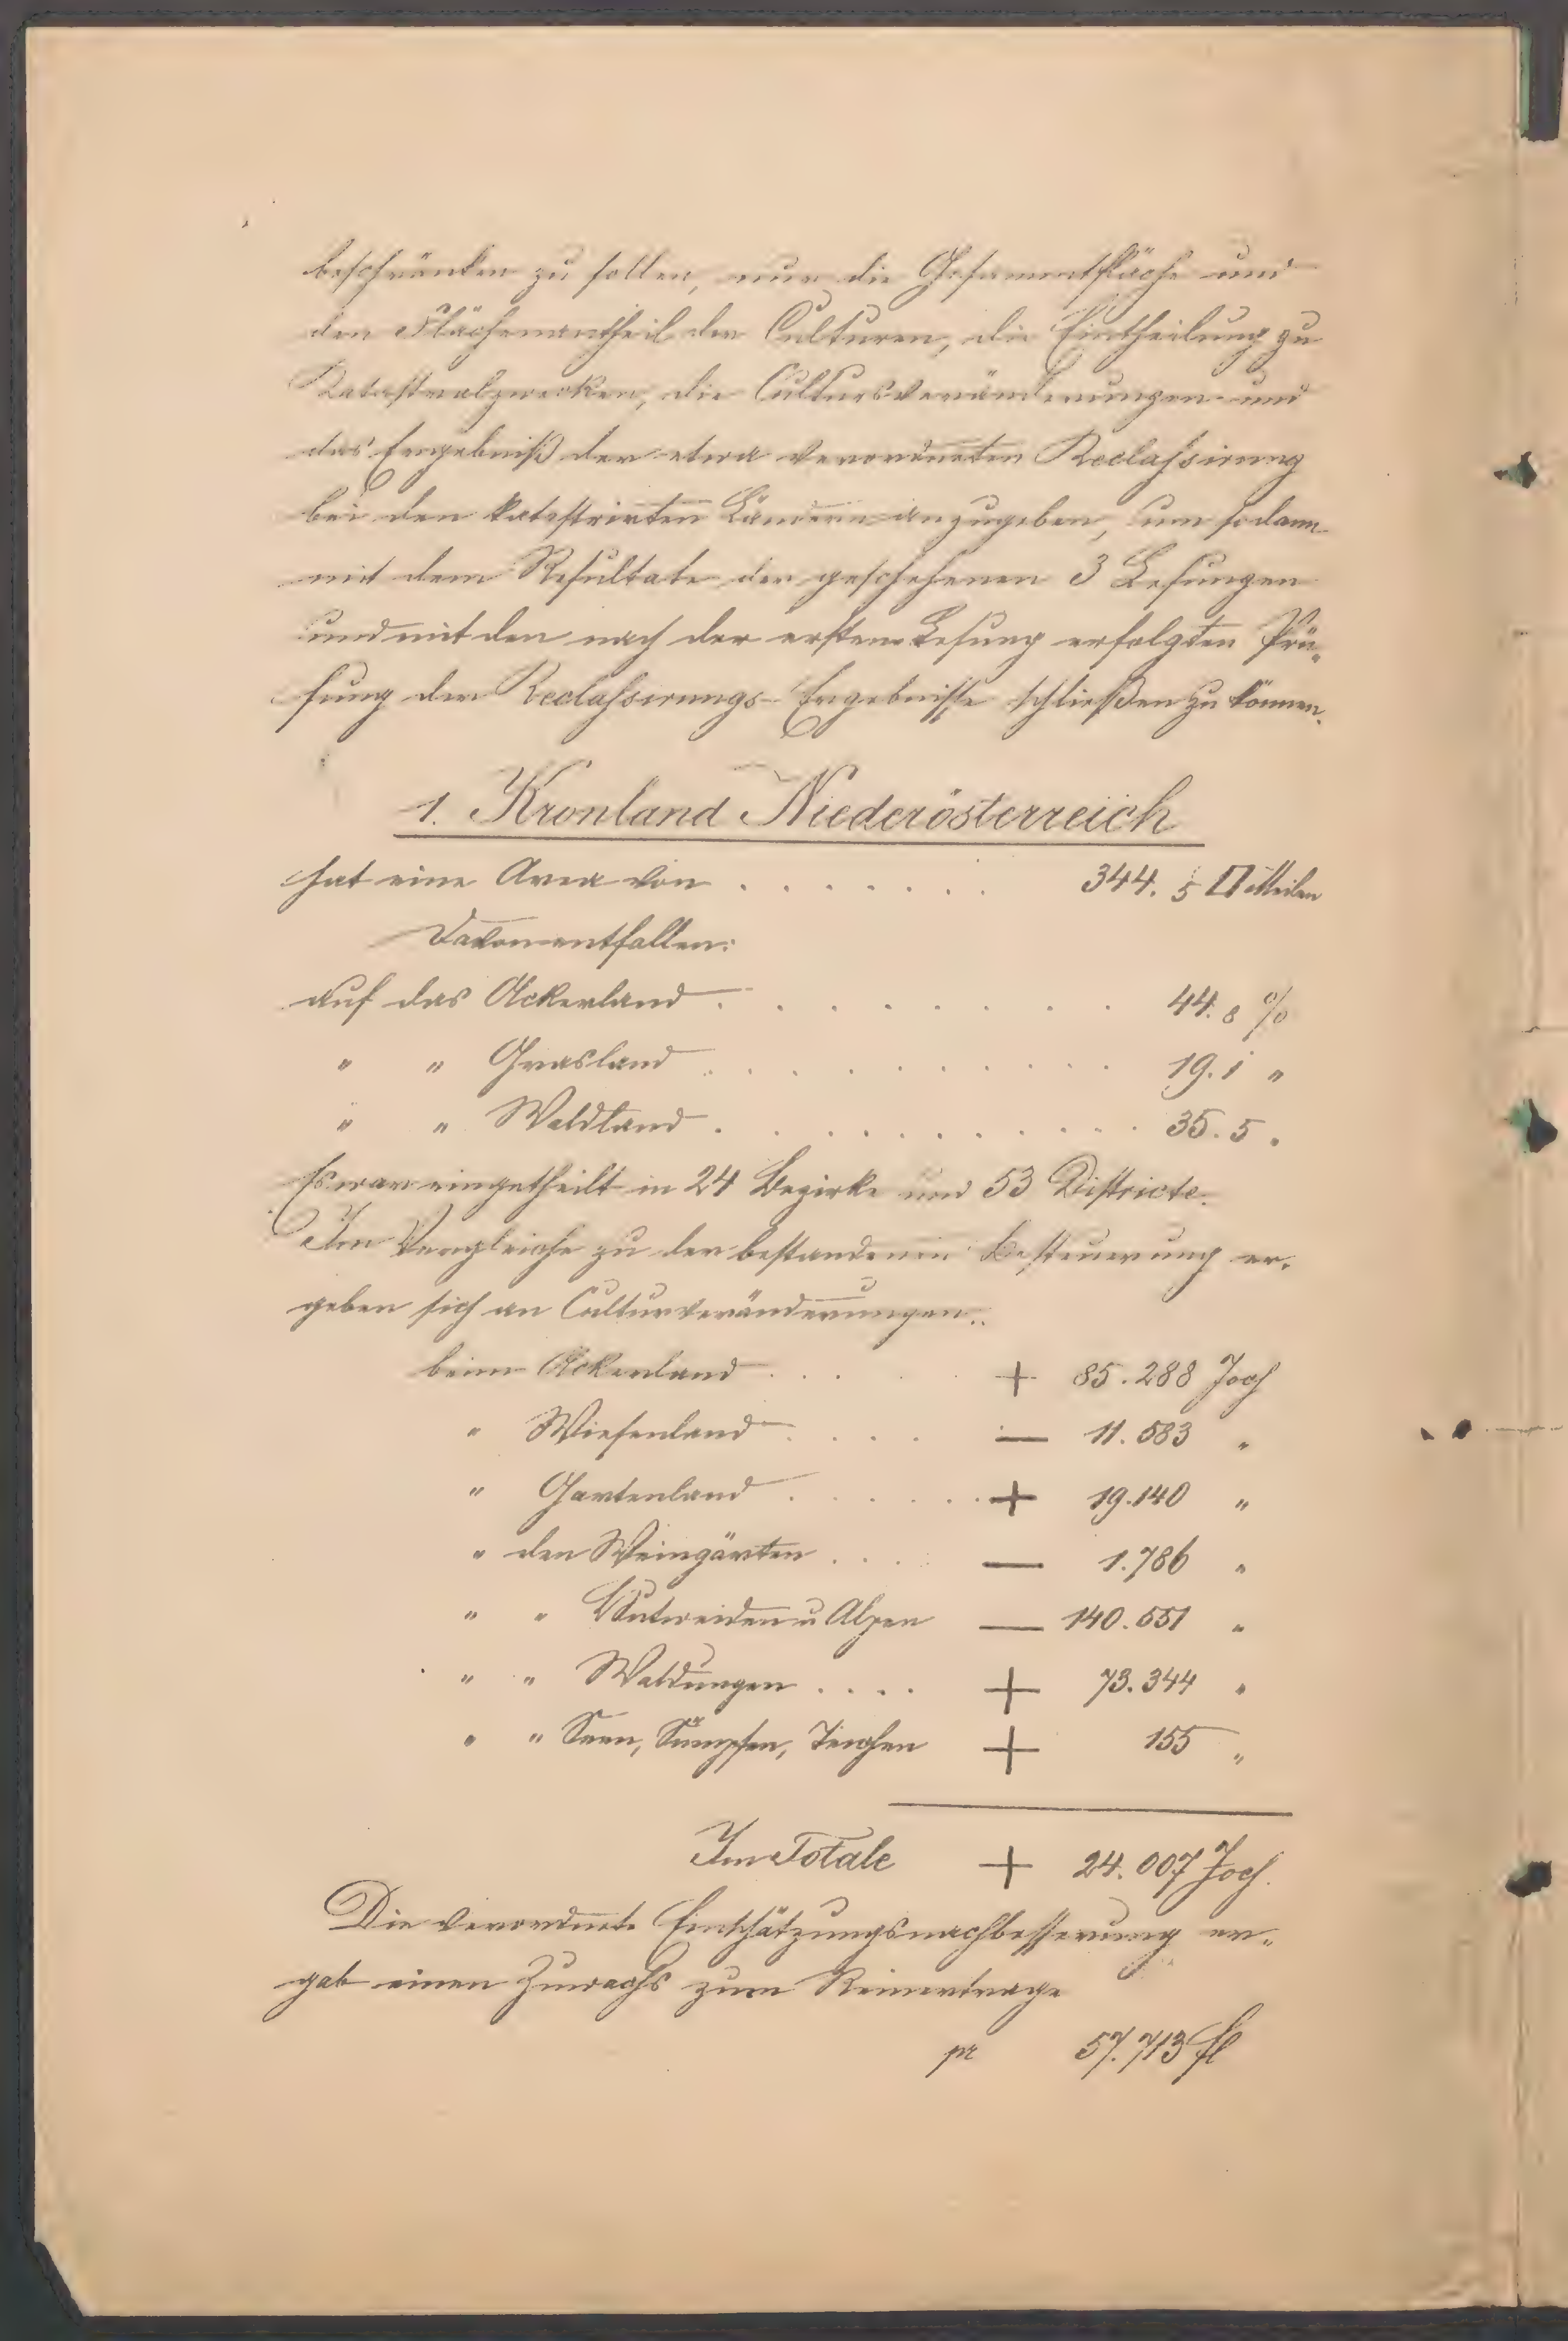 beschränken zu sollen, nur die Gesammtfläche und
den Flächenantheil der Culturen, die Eintheilung zu
Katastralzwecken, die Cultursveränderungen und
das Ergebniß der etwa verordneten Reclassirung
bei den katastrirten Ländern anzugeben, um sodann
mit dem Resultate der geschehenen 3 Lesungen
und mit den nach der ersten Lesung erfolgten Prü„
fung der Reclassirungs-Ergebnisse schließen zu können.
1. Kronland Niederösterreich
hat eine Area von . . . . . . . 344. 5 □ Meilen
Davon entfallen:
auf das Ackerland . . . . . . . . 44. 8 %
" " Grasland . . . . . . . . . . 19. 1 "
" " Waldland . . . . . . . . . . 35. 5 "
Es war eingetheilt in 24 Bezirke und 53 Districte.
Im Vergleiche zu der bestandenen Besteuerung er„
geben sich an Culturveränderungen:
beim Ackerland . . . . + 85.288 Joch
" Wiesenland . . . . — 11.583 "
" Gartenland . . . . . + 19.140 "
" den Weingärten . . . . — 1.786 "
" " Hutweiden u Alpen — 140.551 "
" " Waldungen . . . . + 73.344 "
" " Seen, Sümpfen, Teichen + 155 "
Im Totale + 24.007 Joch.
Die verordnete Einschätzungsnachbesserung er„
gab einen Zuwachs zum Reinertrage
pr 57.713 fl